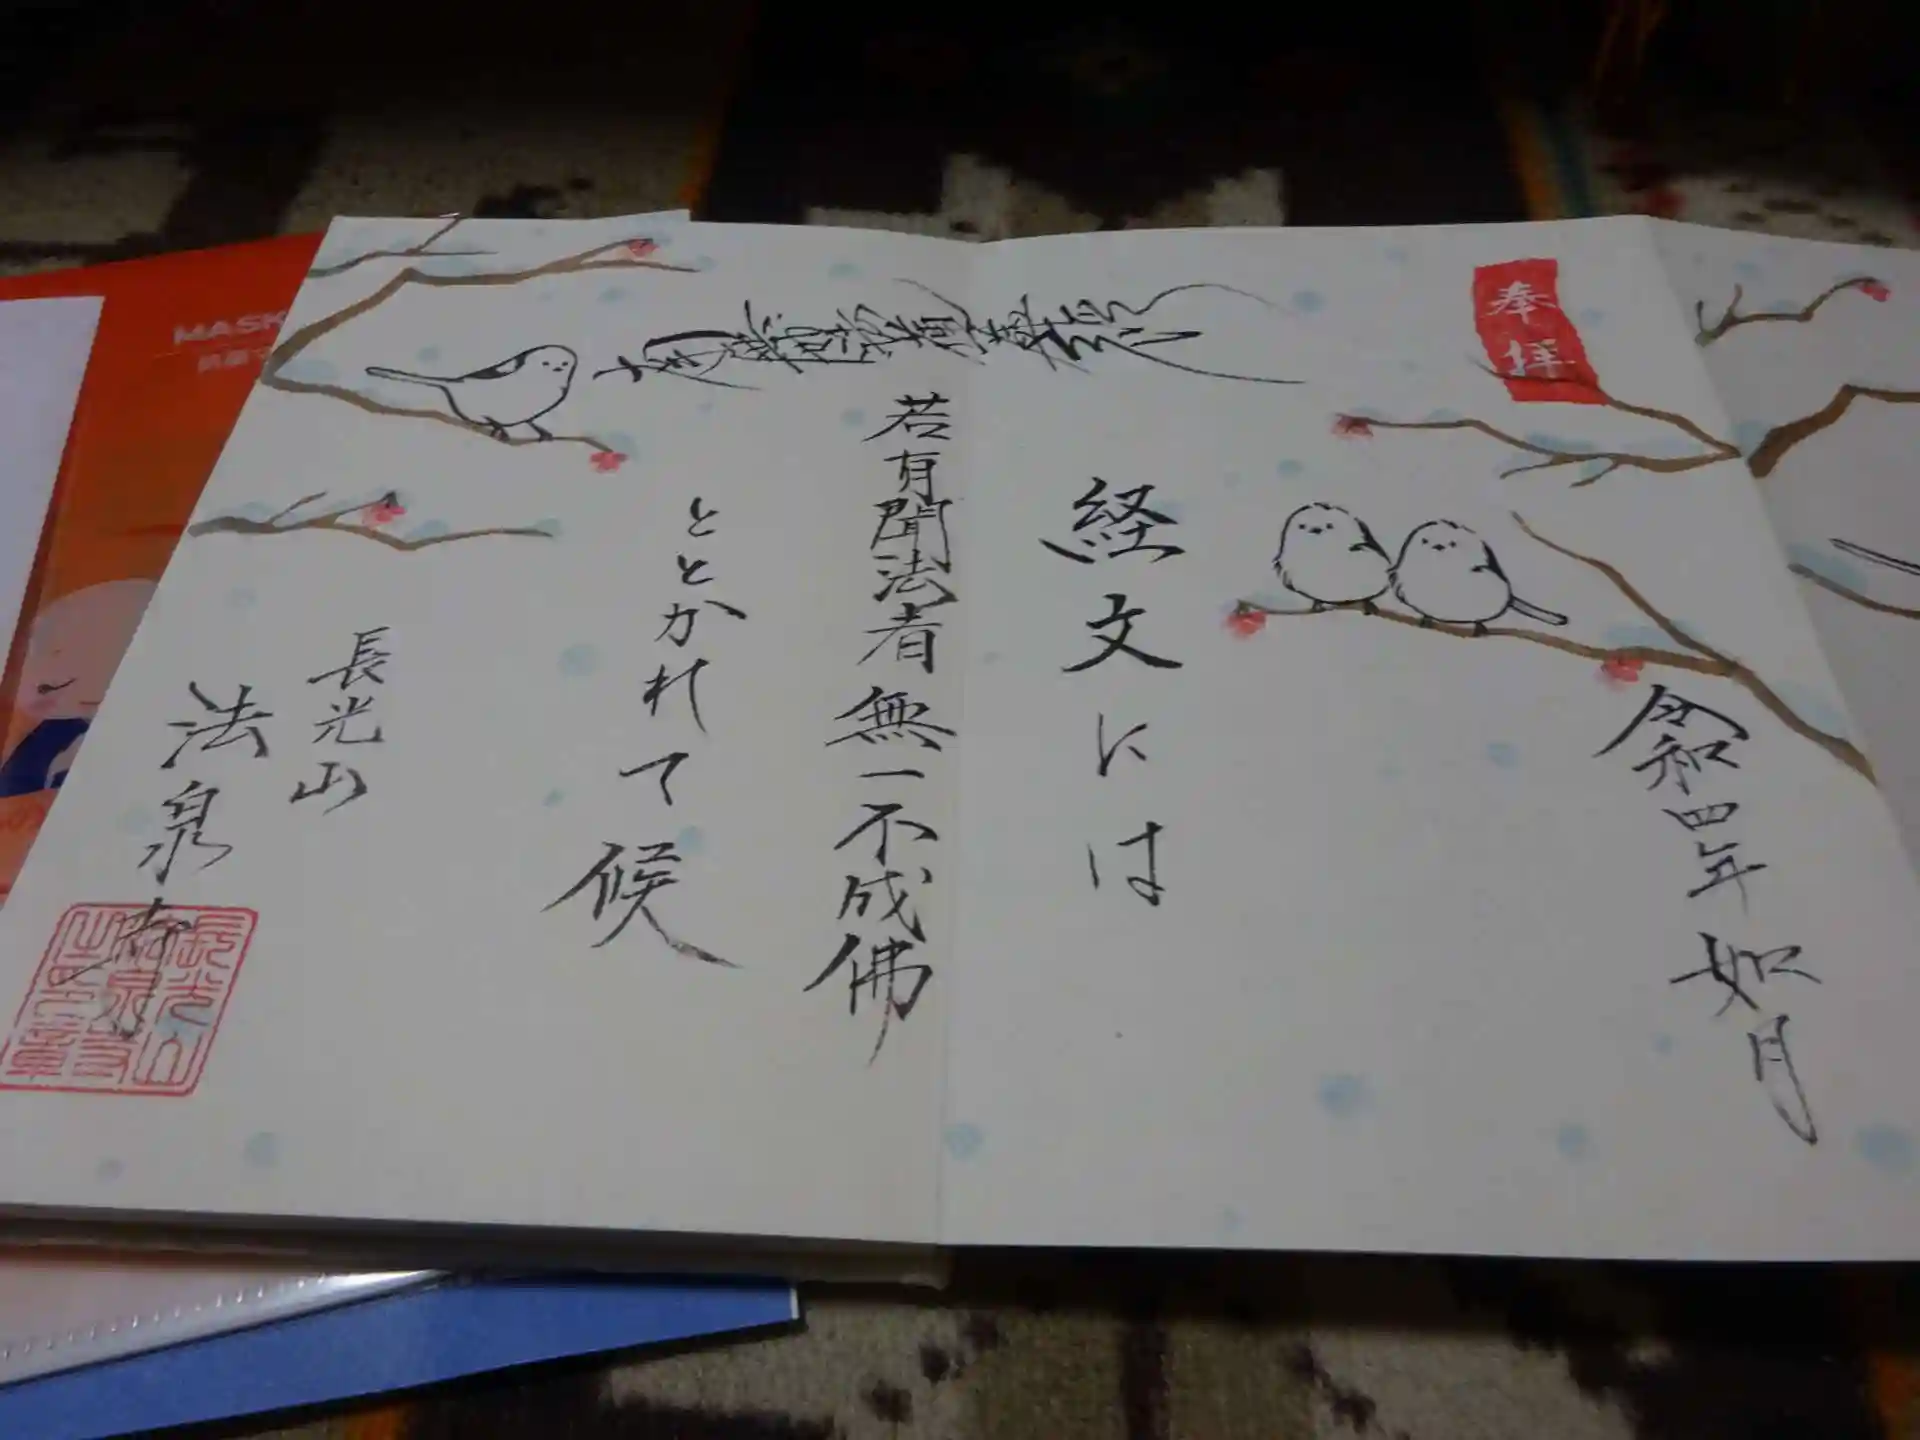 奉拝
令和四年如月
経文には
若有聞法者無一不成佛
ととかれて候
長光山
法泉寺
MASK